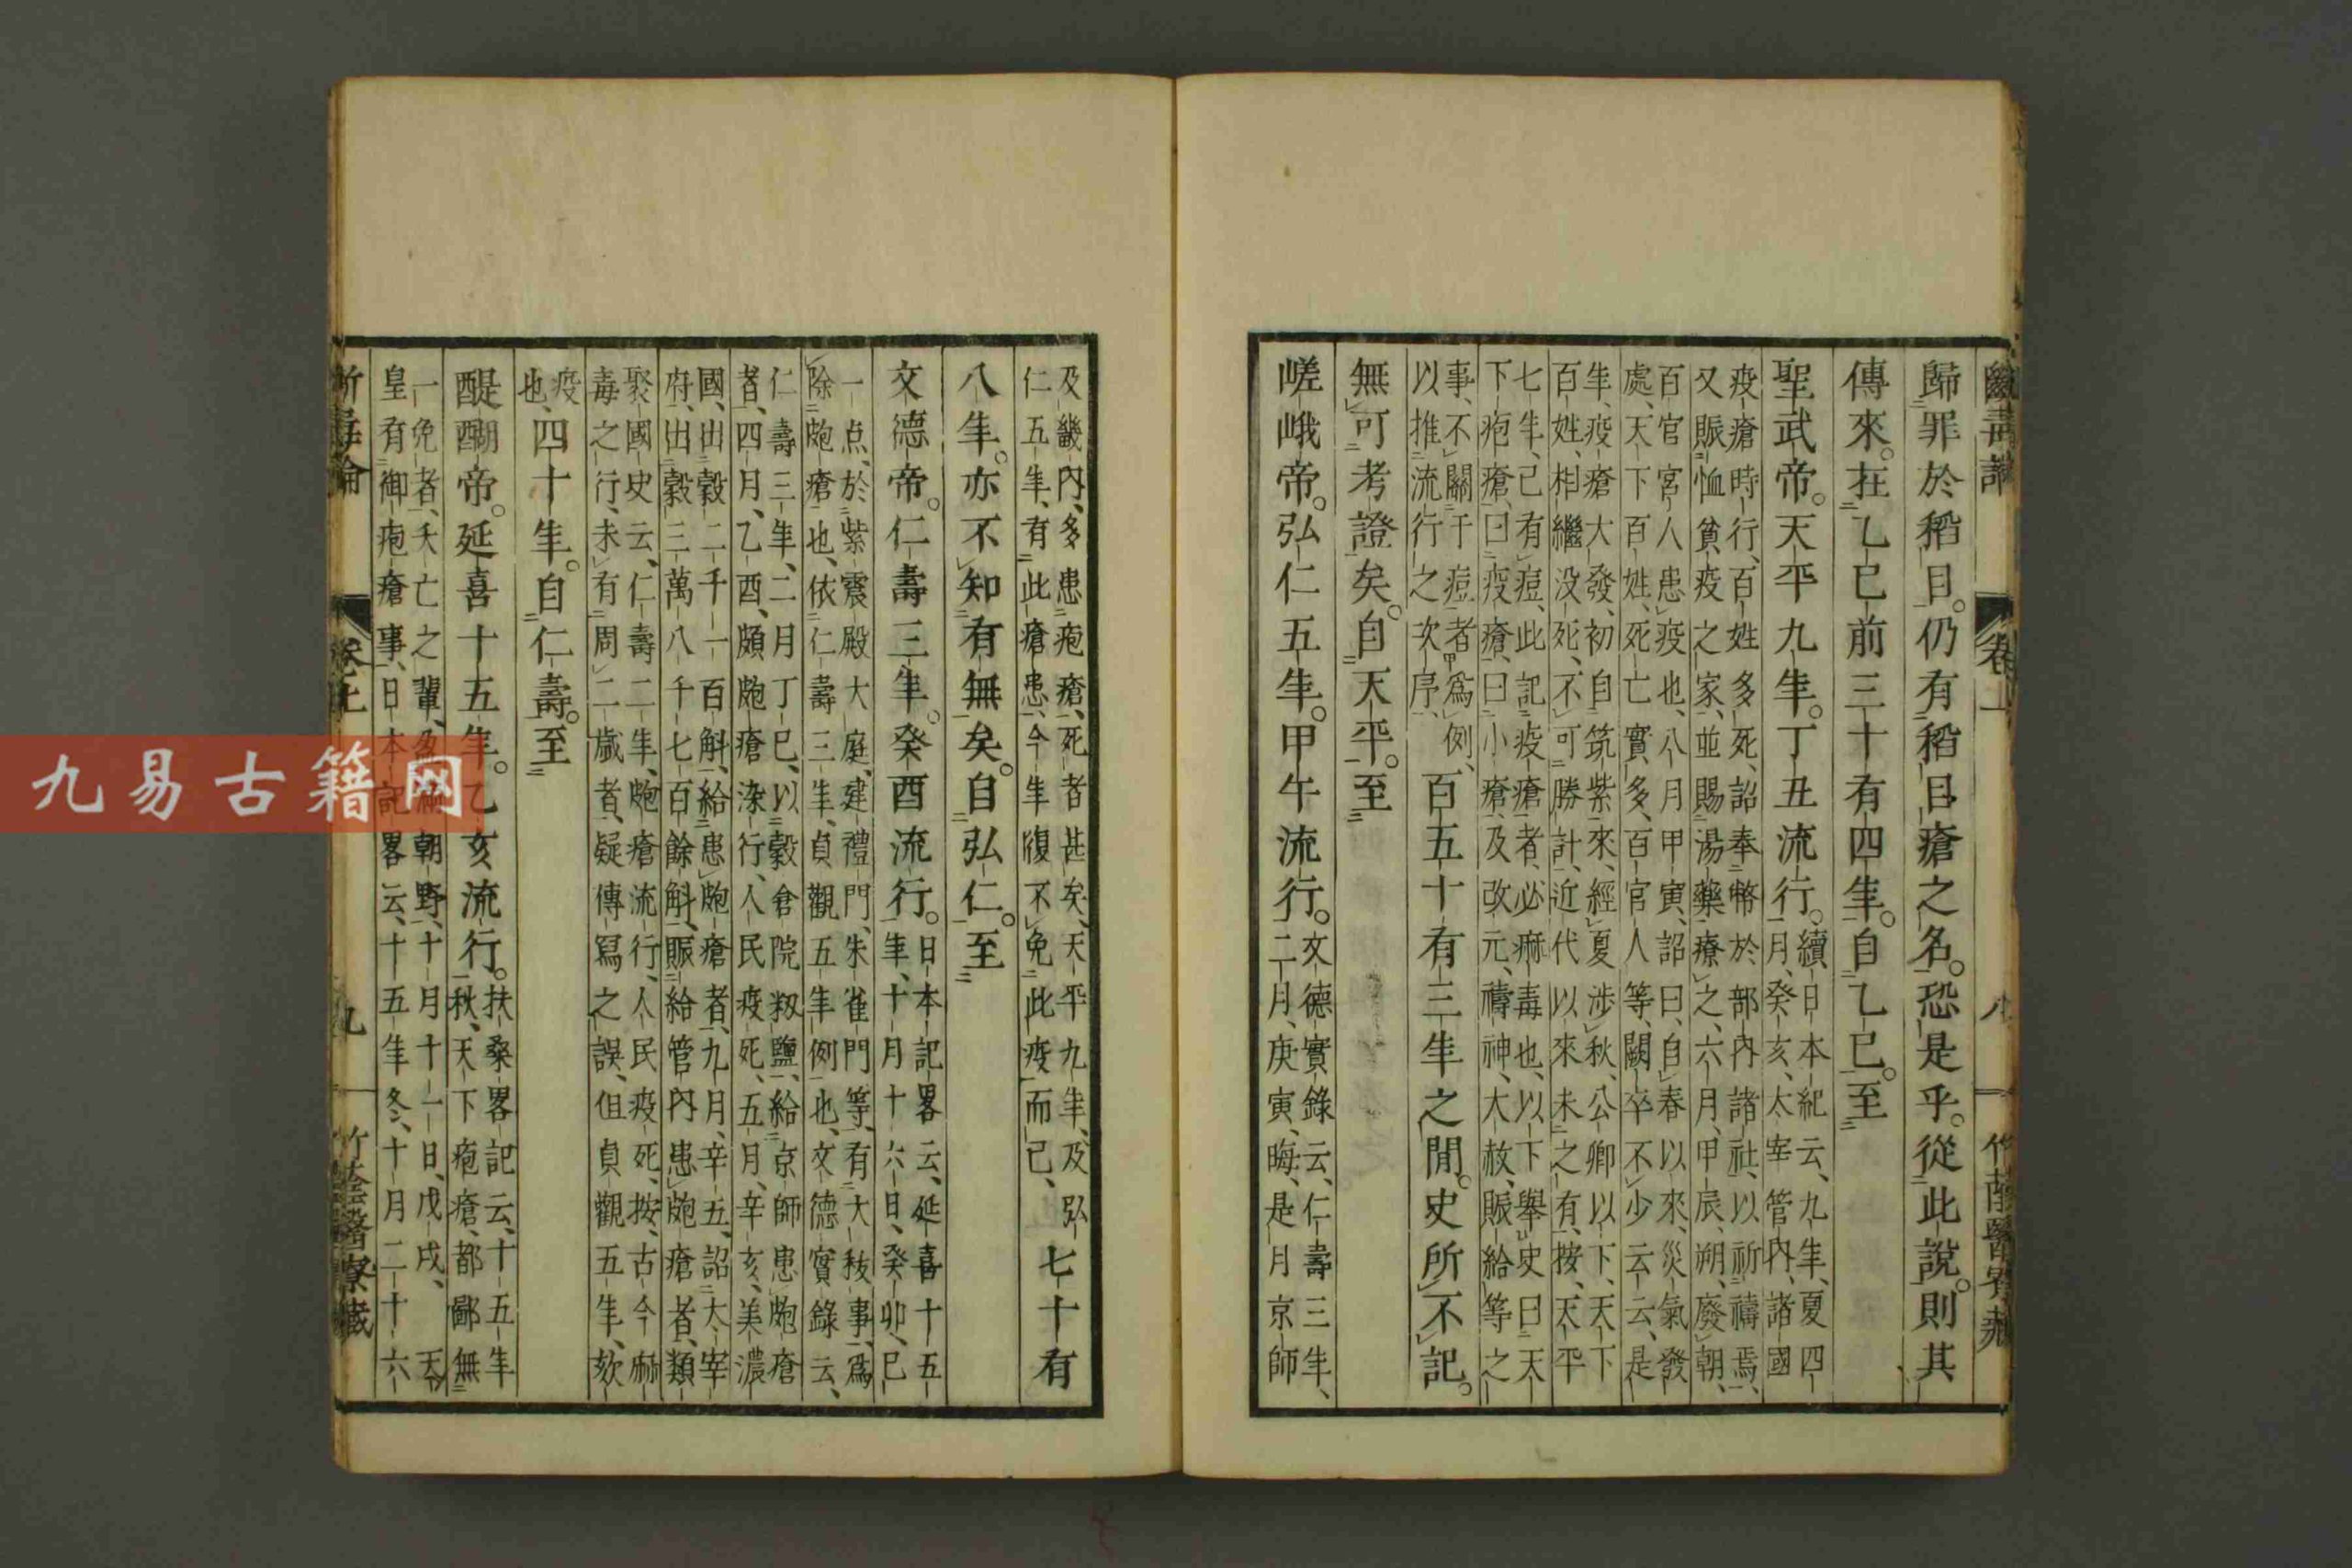 歸罪於稻目。仍有稻目瘡之名。恐是乎。從此說。則其
傳來。在乙巳前三十有四年。自乙巳。至
聖武帝。天平九年。丁丑流行。續日本紀云、九年、夏四
月、癸亥、太宰管內、諸國
疫瘡時行、百姓多死、詔奉幣於部內諸社、以祈禱焉、
又賑恤貧疫之家、並賜湯藥療之、六月、甲辰、朔、廢朝、
百官宮人患疫也、八月甲寅、詔曰、自春以來、災氣發
處、天下百姓、死亡實多、百官人等、闕卒不少云云、是
年、疫瘡大發、初自筑紫來、經夏涉秋、公卿以下、天下
百姓、相繼沒死、不可勝計、近代以來未之有、按、天平
七年、已有痘、此記疫瘡者、必麻毒也、以下舉史曰天
下疱瘡、曰疫瘡、曰小瘡、及改元、禱神、大赦、賑給等之
事、不關于痘者爲例、
以推流行之次序、
百五十有三年之間。史所不記。
無可考證矣。自天平。至
嵯峨帝。弘仁五年。甲午流行。文德實錄云、仁壽三年、
二月、庚寅、晦、是月京師
及畿內、多患疱瘡、死者甚矣、天平九年、及弘
仁五年、有此瘡患、今年復不免此疫而已、
七十有
八年。亦不知有無矣。自弘仁。至
文德帝。仁壽三年。癸酉流行。日本記畧云、延喜十五
年、十月十六日、癸卯、已
一点、於紫震殿大庭、建禮門、朱雀門等、有大秡事、爲
除皰瘡也、依仁壽三年、貞觀五年例也、文德實錄云、
仁壽三年、二月丁巳、以穀倉院籾鹽、給京師患皰瘡
者、四月、乙酉、頗皰瘡染行、人民疫死、五月、辛亥、美濃
國、出穀二千一百斛、給患皰瘡者、九月、辛五、詔大宰
府、出穀三萬八千七百餘斛、賑給管內患皰瘡者、類
聚國史云、仁壽二年、皰瘡流行、人民疫死、按、古今麻
毒之行、未有周二歲者、疑傳寫之誤、但貞觀五年、欬
疫
也、
四十年。自仁壽。至
醍醐帝。延喜十五年。乙亥流行。扶桑畧記云、十五年
秋、天下疱瘡、都鄙無
一免者、夭亡之輩、朝野、十月十一日、戊戌、天
皇有御疱瘡事、日本記畧云、十五年冬、十月二十六
卷上
九
竹蔭醫寮藏
卷上
八
九易古籍网